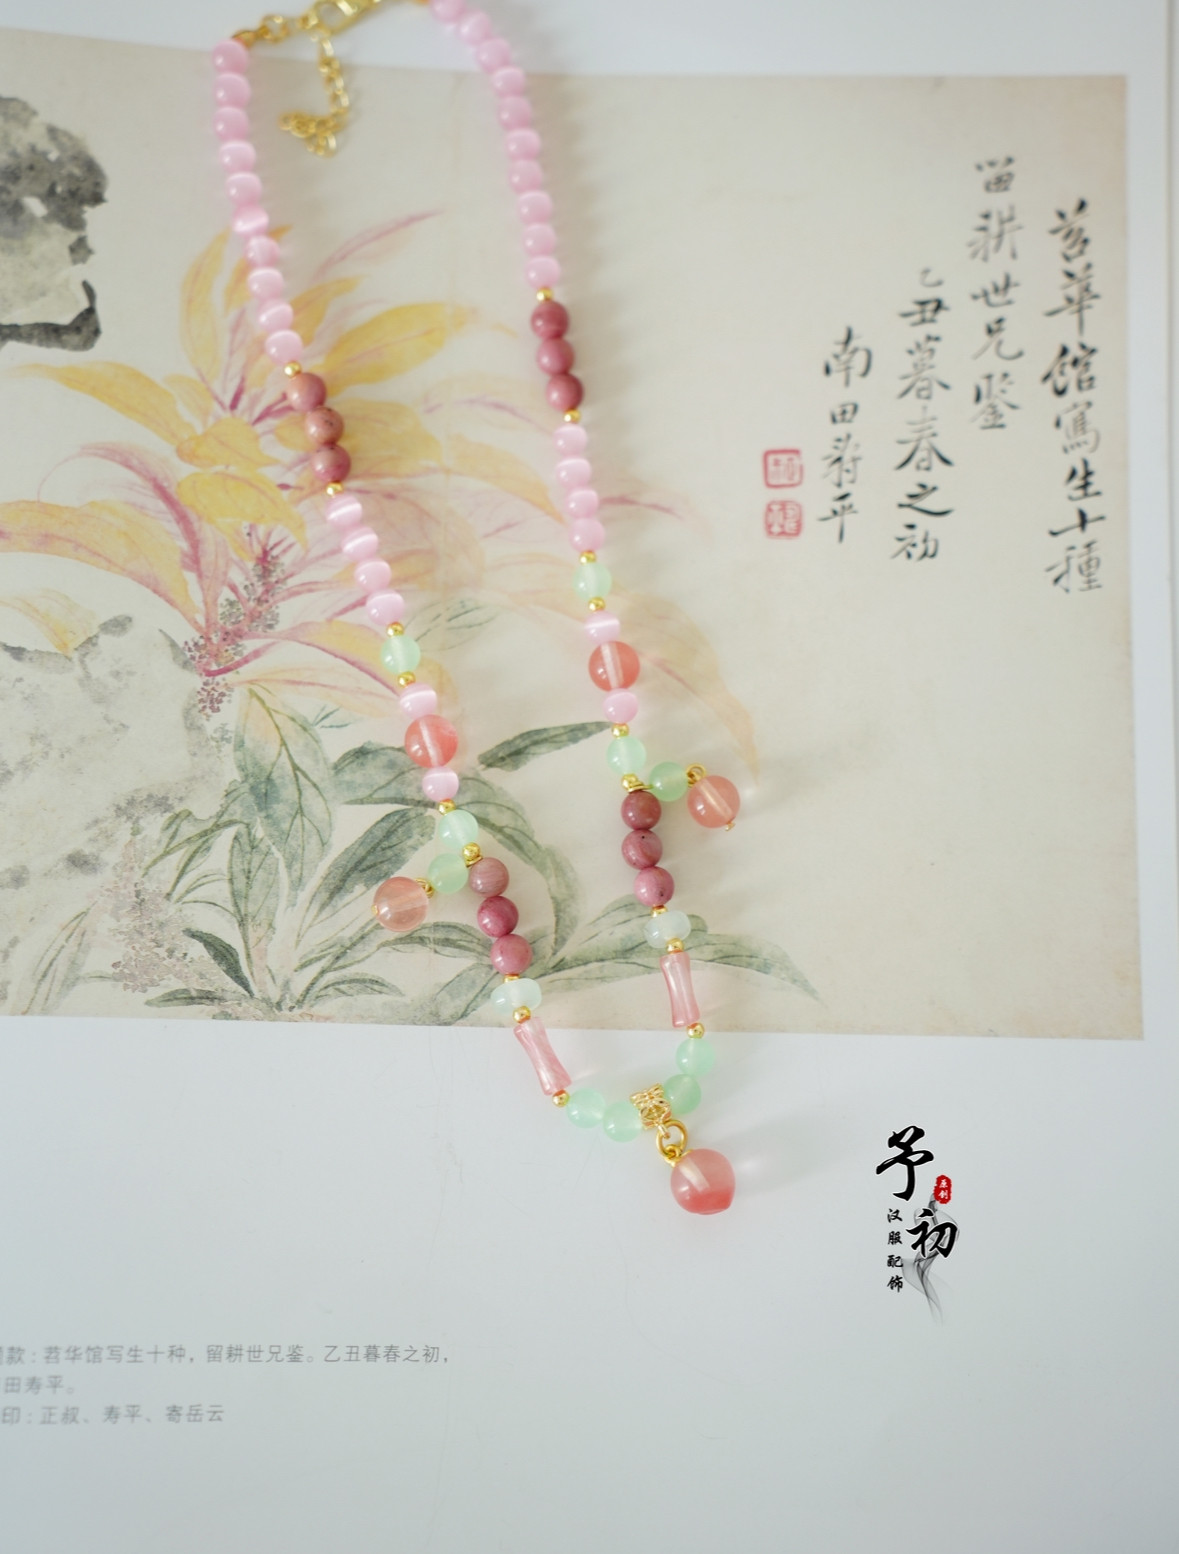 苕華館寫生十種
留耕世兄鑒
乙丑暮春之初
南田壽平
予初
原创
汉服配饰
款：苕华馆写生十种，留耕世兄鉴。乙丑暮春之初，
田寿平。
印：正叔、寿平、寄岳云